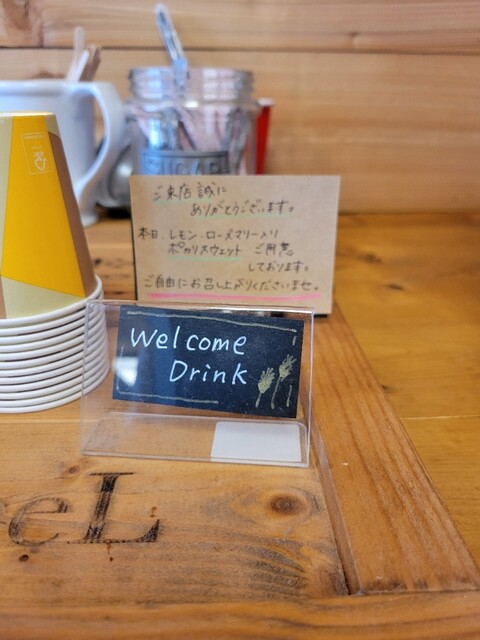 SUGAR
ご来店誠に
ありがとうございます。
本日、レモン・ローズマリー入り
ポカリスウェット ご用意
しております。
ご自由にお召し上がりくださいませ。
Welcome
Drink
eL